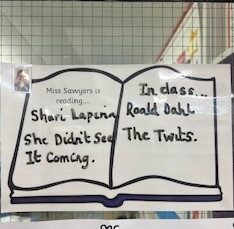 Miss Sawyers is
reading....
Shari Lapena
She Didn't See
It Coming.
In class...
Roald Dahl
The Twits.